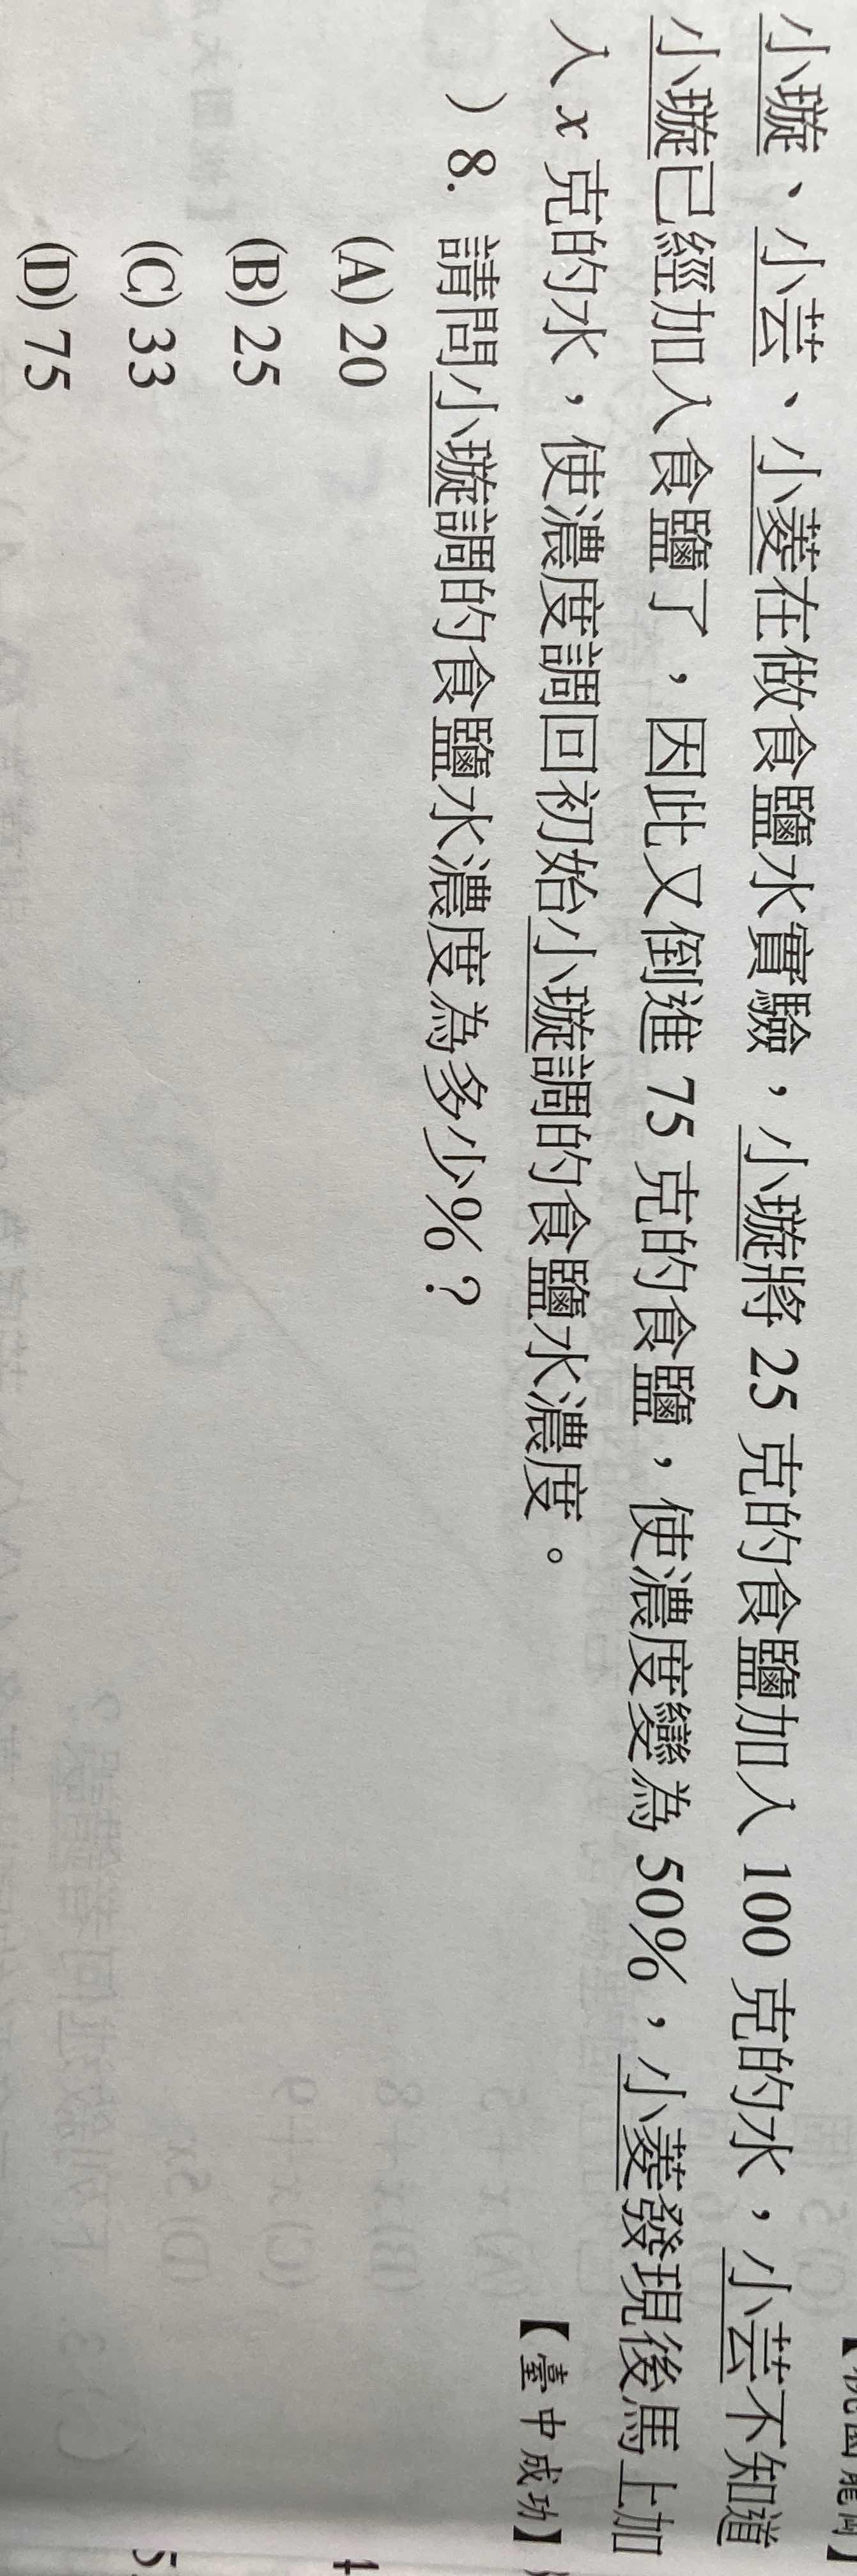 小璇、小芸、小菱在做食鹽水實驗，小璇將 25 克的食鹽加入 100 克的水，小芸不知道
小璇已經加入食鹽了，因此又倒進 75 克的食鹽，使濃度變為 50%，小菱發現後馬上加
入 x 克的水，使濃度調回初始小璇調的食鹽水濃度。
【臺中成功】
) 8. 請問小璇調的食鹽水濃度為多少%？
(A) 20
(B) 25
(C) 33
(D) 75